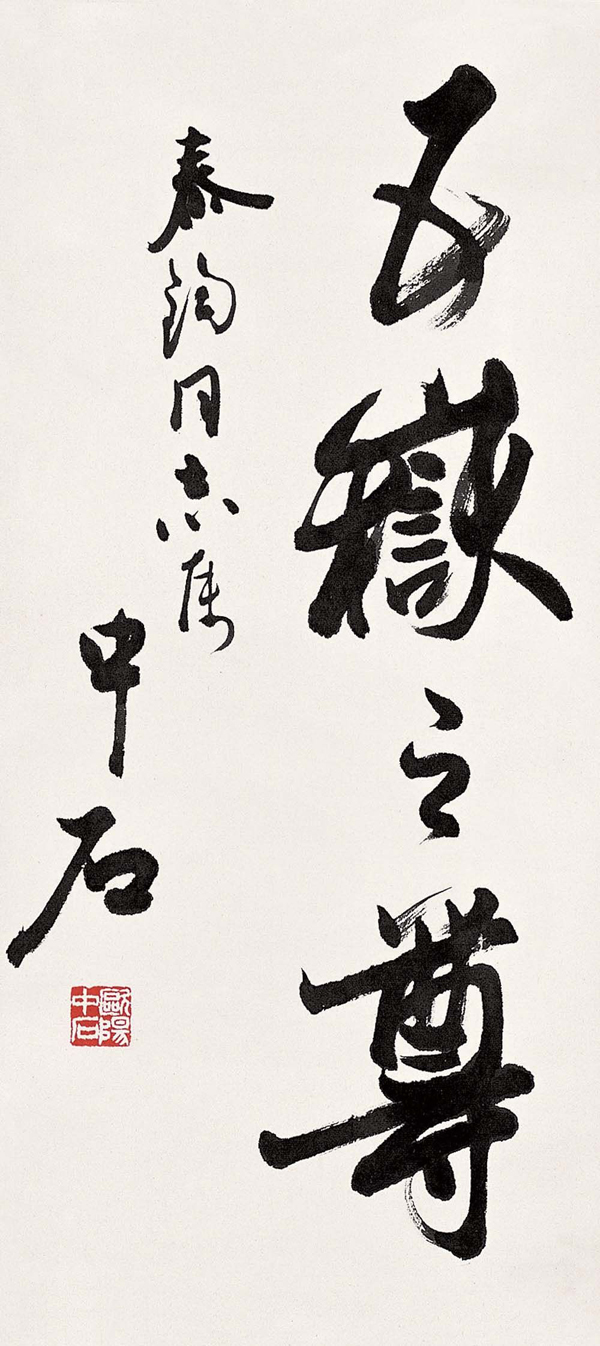 五嶽之尊
泰鈞同志属
中石
歐陽中石